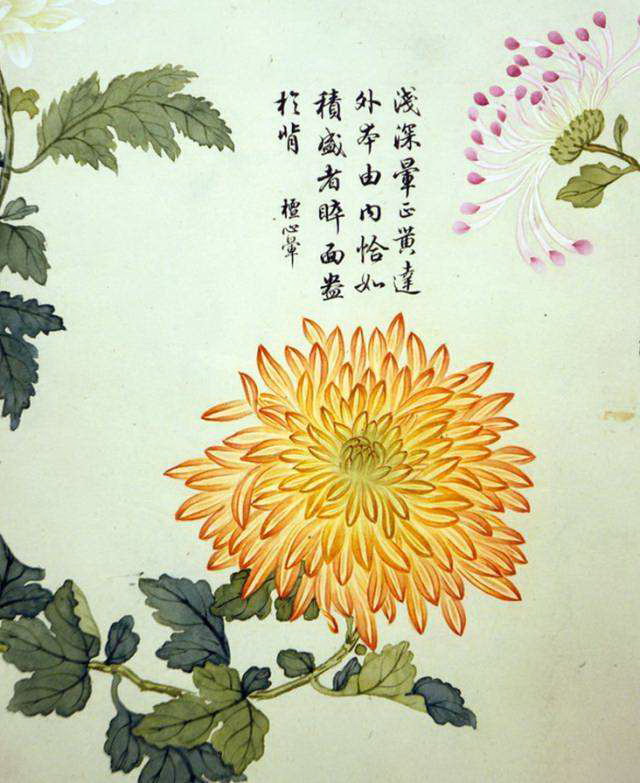 淺深暈正黃達
外本由内恰如
積盛者睟面盎
扵背
檀心暈